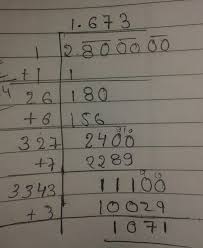 1.673
1 2.80 00 00
+1 1
26 180
+6 156
327 2400
+7 2289
3343 11100
+3 10029
1071